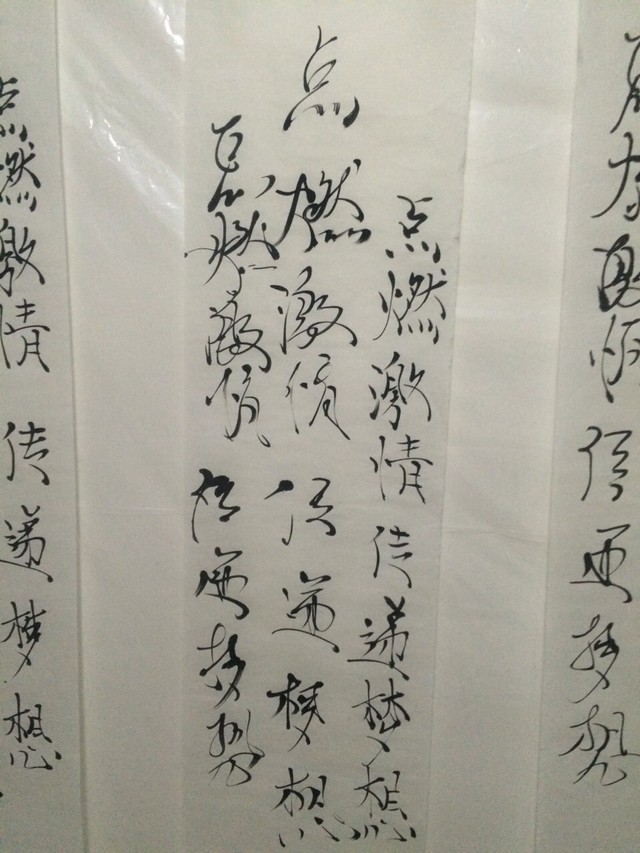 点燃激情传递梦想
点燃激情传递梦想
点燃激情传递梦想
点燃激情传递梦想
点燃激情传递梦想